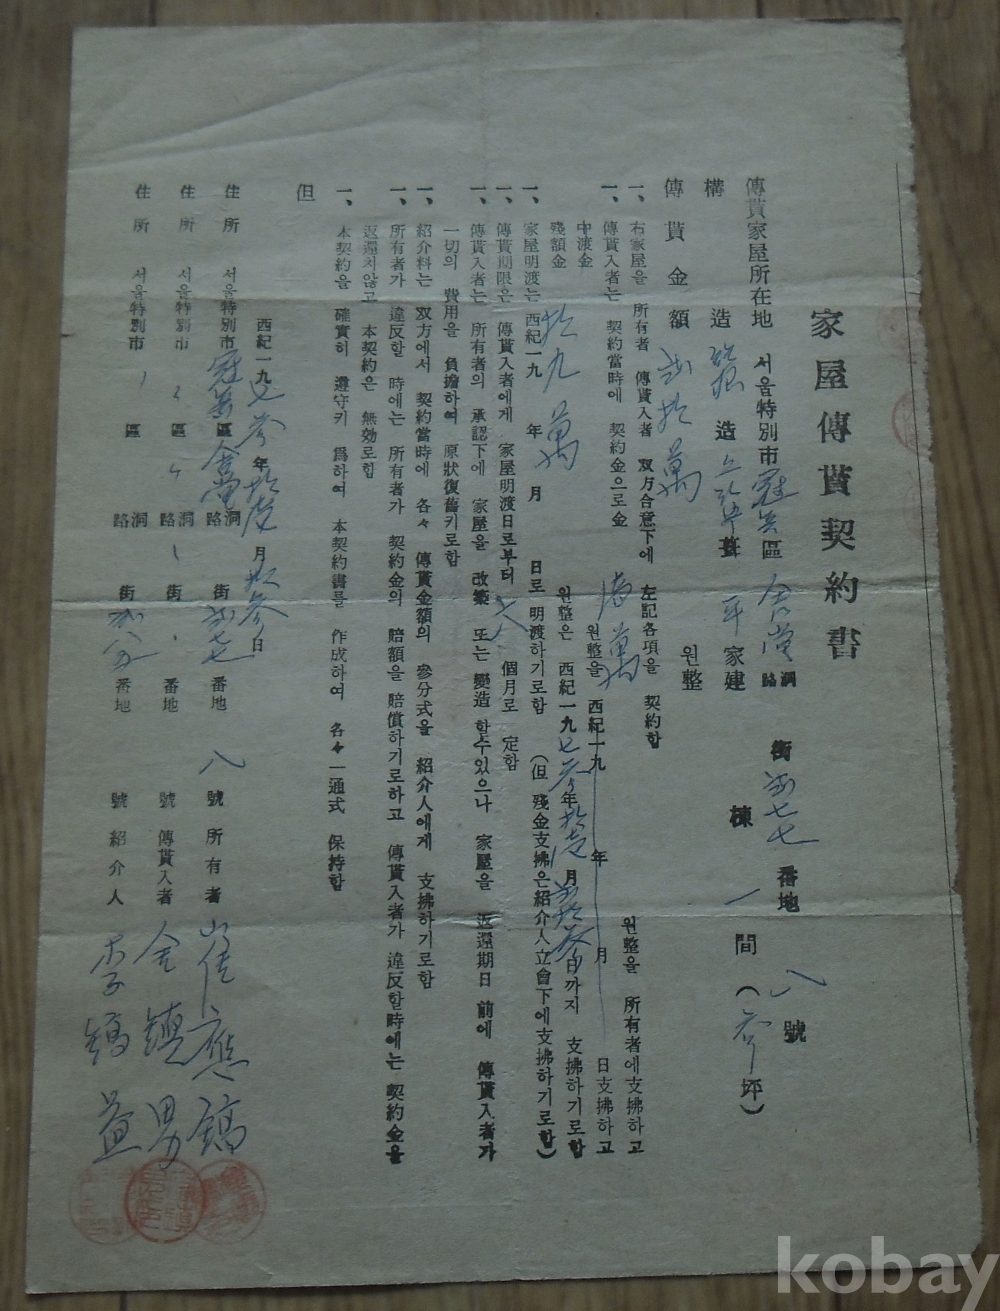 家屋傳貰契約書
傳貰家屋所在地 서울特別市冠岳區 舍堂洞路 街 貳七七 番地 八 號
構造 造 葺 平家建 棟 一間(参坪)
傳貰金額 貳拾萬 원整
一、右家屋을 所有者 傳貰入者 双方合意下에 左記各項을 契約함
一、傳貰入者는 契約當時에 契約金으로金 壹萬 원整을 所有者에支拂하고
中渡金 원整을 西紀一九 年 月 日支拂하고
残額金 拾九萬 원整은 西紀一九七参年拾壹月貳拾参日까지 支拂하기로함
一、家屋明渡는 西紀一九 年 月 日로 明渡하기로함 (但 残金支拂은紹介人立會下에支拂하기로함)
一、傳貰期限은 傳貰入者에게 家屋明渡日로부터 六 個月로 定함
一、傳貰入者는 所有者의 承認下에 家屋을 改築 또는 變造 할수있으나 家屋을 返還期日 前에 傳貰入者가
一切의 費用을 負擔하여 原狀復舊키로함
一、紹介料는 双方에서 契約當時에 各々 傳貰金額의 參分式을 紹介人에게 支拂하기로함
一、所有者가 違反할 時에는 所有者가 契約金의 賠額을 賠償하기로하고 傳貰入者가 違反할時에는 契約金을
返還치않고 本契約은 無効로함
一、本契約을 確實히 遵守키 爲하여 本契約書를 作成하여 各々一通式 保持함
但
西紀一九七参年拾壹月拾参日
住所 서울特別市冠岳區舍堂洞路 街貳七七番地 八 號 所有者 崔應鎬
住所 서울特別市 〃 區 〃 洞路 〃 街 〃 番地 號 傳貰入者 金鎭男
住所 서울特別市 〃 區 洞路 街貳八五番地 號 紹介人 李
kobay